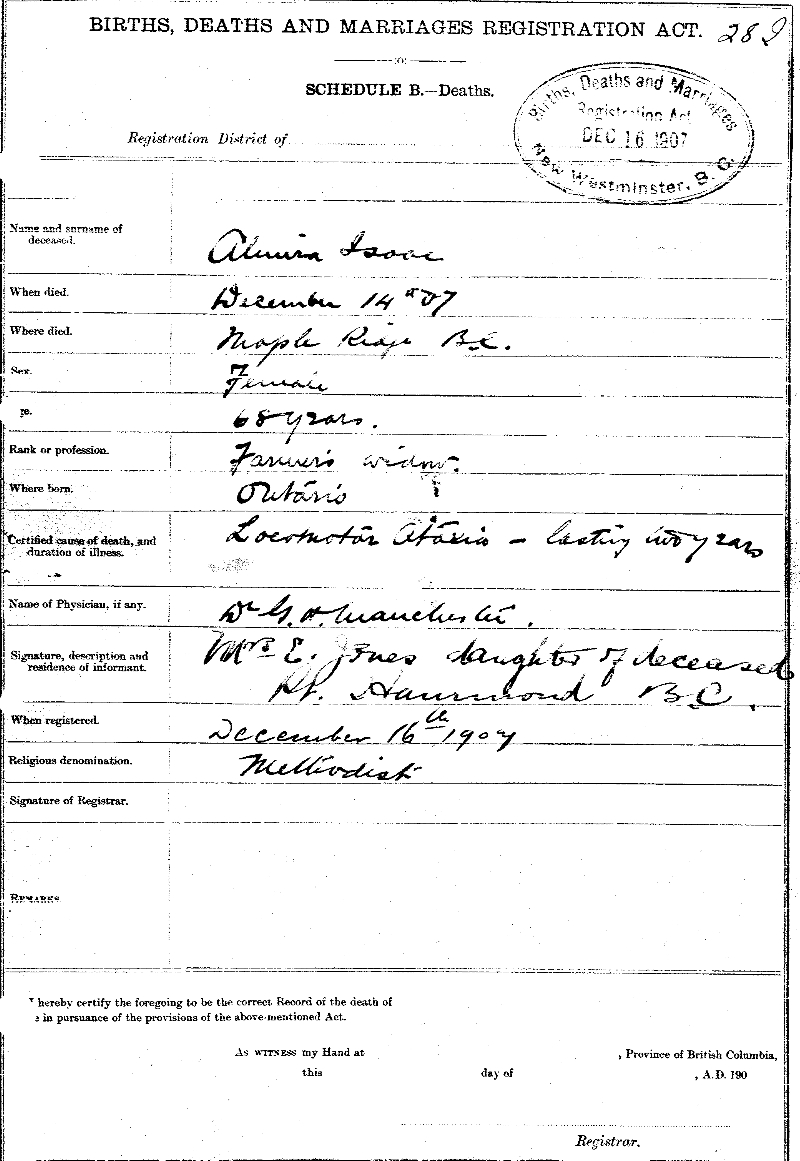 BIRTHS, DEATHS AND MARRIAGES REGISTRATION ACT. 282
SCHEDULE B.—Deaths.
Births, Deaths and Marriages
Registration Act
DEC 16 1907
New Westminster, B.C.
Registration District of
Name and surname of
deceased.
Almira Isaac
When died.
December 14th 07
Where died.
Maple Ridge B.C.
Sex.
Female
ge.
68 years.
Rank or profession.
Farmer's widow.
Where born.
Ontario
Certified cause of death, and
duration of illness.
Locomotor Ataxia - lasting two years
Name of Physician, if any.
Dr G. H. Manchester.
Signature, description and
residence of informant.
Mrs E. Jones daughter of deceased
Pt. Hammond B.C.
When registered.
December 16th 1907
Religious denomination.
Methodist
Signature of Registrar.
REMARKS
I hereby certify the foregoing to be the correct Record of the death of
e in pursuance of the provisions of the above-mentioned Act.
AS WITNESS my Hand at , Province of British Columbia,
this day of , A.D. 190
Registrar.